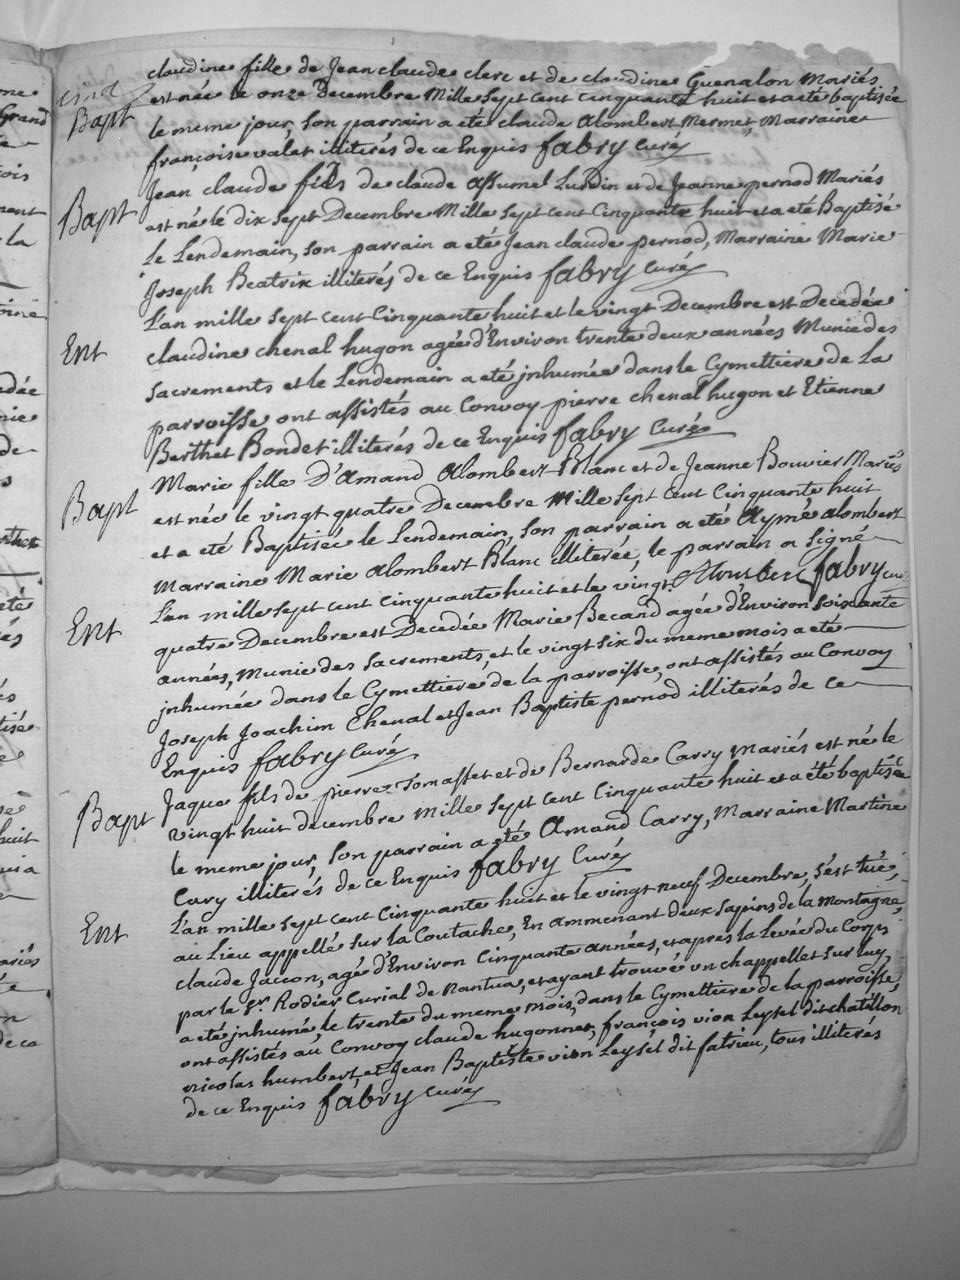 claudine fille de Jean claude clerc et de claudine Guenalon Mariés
est née le onze Decembre Mille sept cent cinquante huit et a eté baptisée
Bapt
le meme jour, son parrain a eté claude alombert Mermet, Marraine
françoise valet illiterés de ce Enquis fabry Curé
Jean claude fils de claude assumel Lurdin et de Jeanne pernod Mariés
Bapt
est né le dix sept Decembre Mille sept cent Cinquante huit et a eté Baptisé
Le Lendemain, son parrain a eté Jean claude pernod, Marraine Marie
Joseph Beatrix illiterés de ce Enquis fabry Curé
L'an mille sept cent Cinquante huit et le vingt Decembre est Decedée
Ent
claudine chenal hugon agée d'Environ trente deux années Munie des
sacrements et le Lendemain a eté jnhumée dans le Cymettiere de La
parroisse ont assistés au Convoy pierre chenal hugon et Etienne
Berthet Bondet illiterés de ce Enquis fabry Curé
Marie fille D'Amand alombert Blanc et de Jeanne Bouvier Mariés
Bapt
est née le vingt quatre Decembre Mille sept cent Cinquante huit
et a eté Baptisée le Lendemain, son parrain a eté Aymé alombert
Marraine Marie alombert Blanc illiterée, le parrain a signé
L'an mille sept cent cinquante huit et le vingt Alombert fabry curé
Ent
quatre Decembre est Decedée Marie Becand agée d'Environ soixante
années, Munie des sacrements, et le vingt six du meme mois a eté
jnhumée dans le Cymettiere de la parroisse, ont assistés au Convoy
Joseph Joachim Chenal et Jean Baptiste pernod illiterés de ce
Enquis fabry Curé
Jaque fils de pierre Tomasset et de Bernarde Carry Mariés est né le
Bapt
vingt huit decembre Mille sept cent Cinquante huit et a été baptisé
le meme jour, son parrain a eté Amand Carry, Marraine Martine
Cary illiterés de ce Enquis fabry Curé
L'an mille sept cent Cinquante huit et le vingt neuf Decembre, s'est tué,
Ent
au Lieu appellé sur la Coutache, En ammenant deux sapins de la montagne,
claude Jaccon, agé d'Environ Cinquante années, et aprés la Levée du Corps
par le Sr. Rodier Curial de Nantua, et ayant trouvé un chappellet sur luy,
a eté jnhumé le trente du meme mois, dans le Cymettiere de la parroisse,
ont assistés au Convoy claude hugonnet, françois vion Leysel dit chatillon
nicolas humbert, et Jean Baptiste vion Leysel dit fatrieu, tous illiterés
de ce Enquis fabry Curé